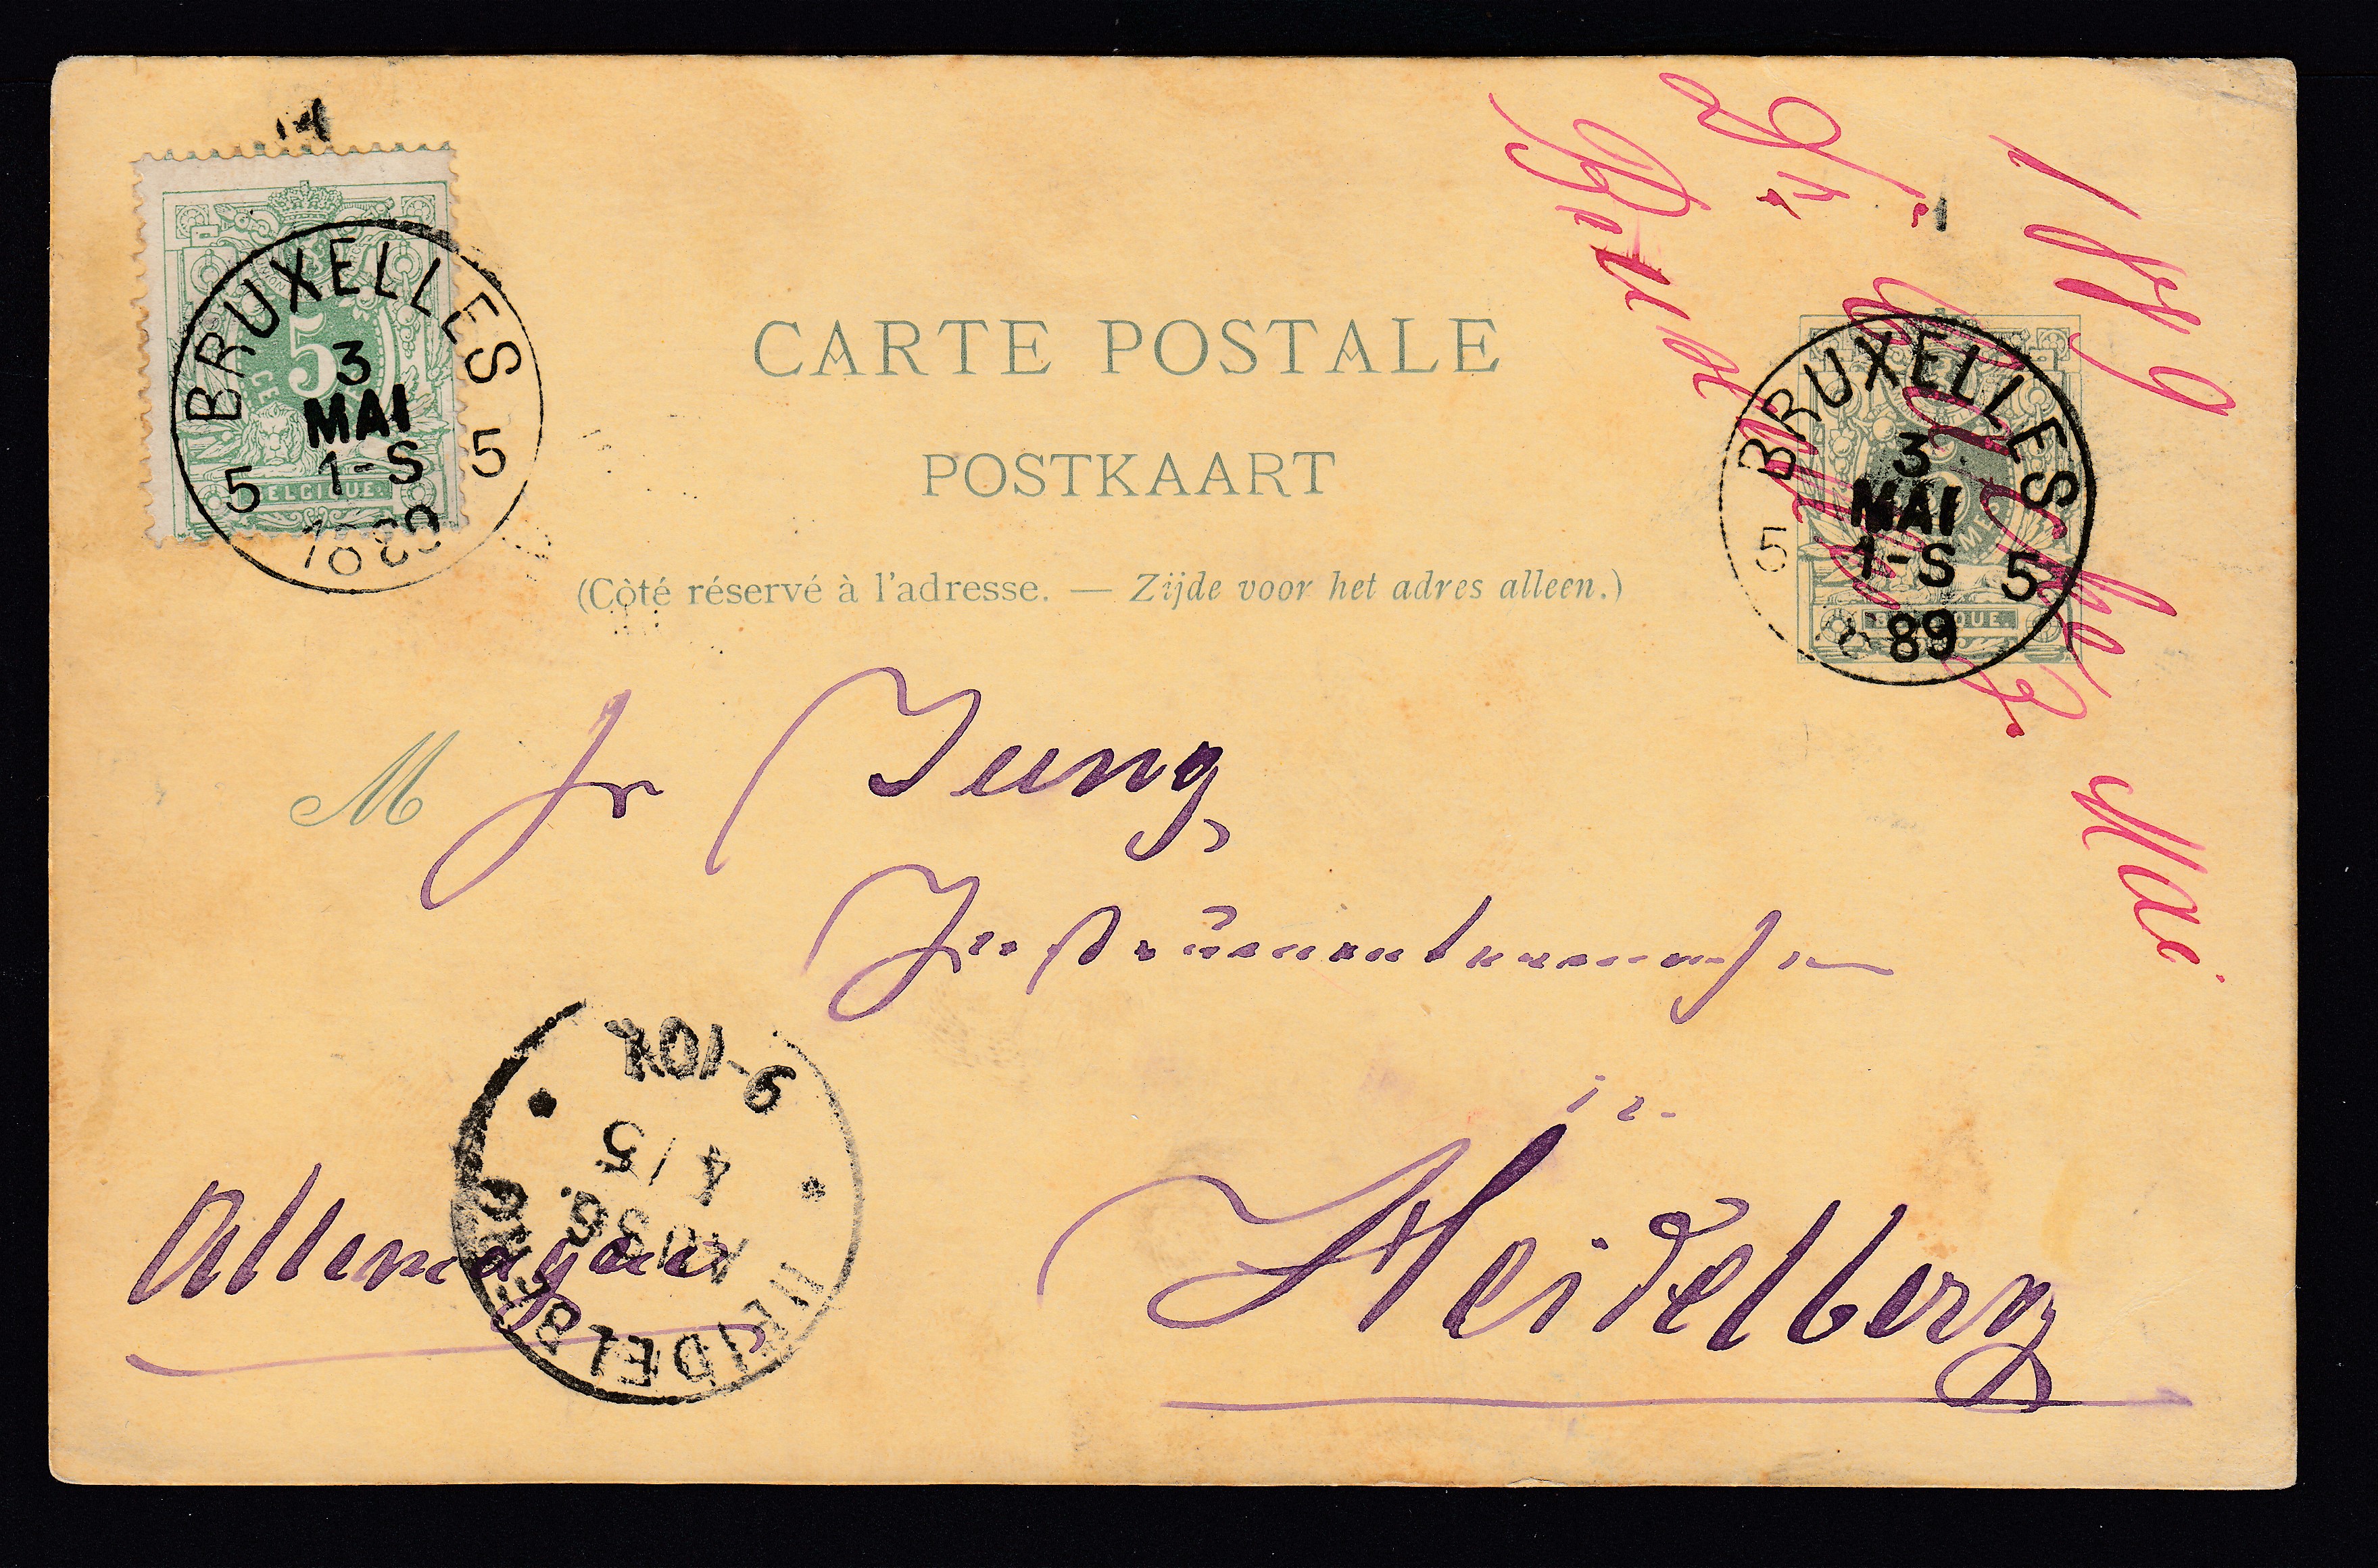 CARTE POSTALE
POSTKAART
(Côté réservé à l'adresse. — Zijde voor het adres alleen.)
5
CE
BELGIQUE
BRUXELLES
3
MAI
1-S
1889
5 5
BRUXELLES
3
MAI
1-S
89
5 5
BELGIQUE
1889
Mai
M Fr Jung,
in
Heidelberg
Allemagne
HEIDELBERG
AUSG.
4/5
9-10V